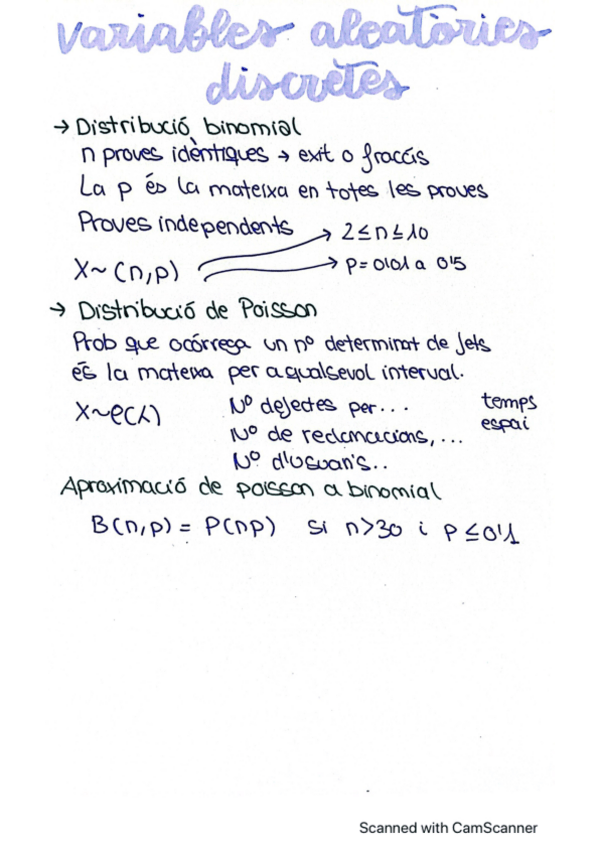 variables aleatòries
discretes
→ Distribució binomial
n proves idèntiques → exit o fracás
La p és la mateixa en totes les proves
Proves independents
→ 2≤n≤10
X~(n,p)
→ p=0'01 a 0'5
→ Distribució de Poisson
Prob que ocórrega un nº determinat de fets
és la mateixa per a qualsevol interval.
X~P(λ)
Nº defectes per...
temps
espai
Nº de reclamacions,...
Nº d'usuaris..
Aproximació de poisson a binomial
B(n,p) = P(np) si n>30 i p≤0'1
Scanned with CamScanner